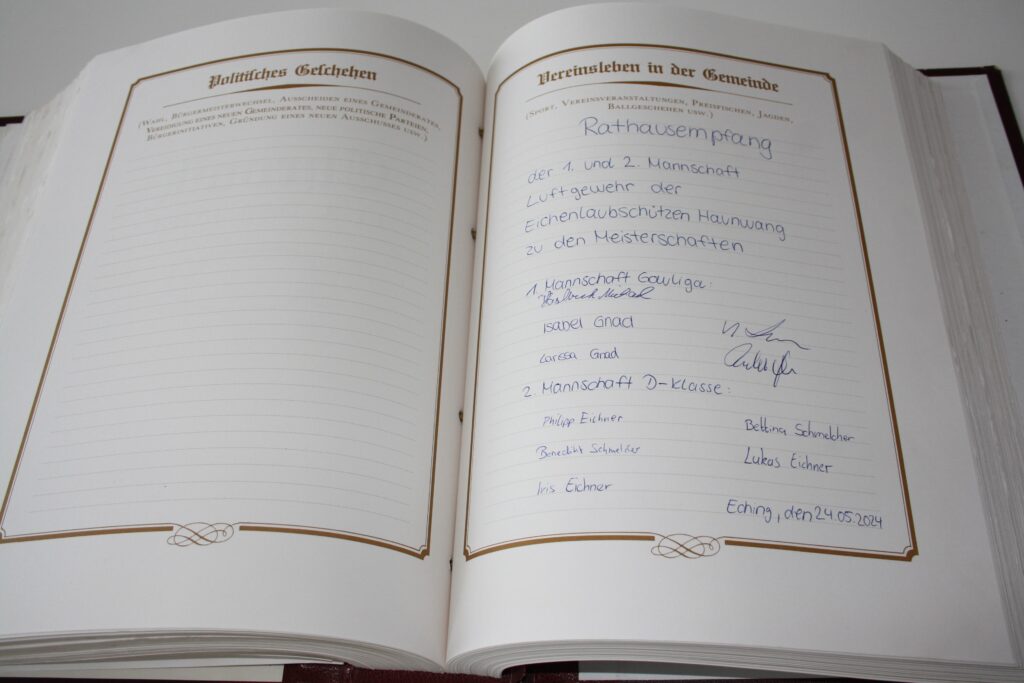 Politisches Geschehen
(Wahl, Bürgermeisterwechsel, Ausscheiden eines Gemeinderates,
Vereidigung eines neuen Gemeinderates, neue politische Parteien,
Bürgerinitiativen, Gründung eines neuen Ausschusses usw.)
Vereinsleben in der Gemeinde
(Sport, Vereinsveranstaltungen, Preisfischen, Jagden,
Ballgeschehen usw.)
Rathausempfang
der 1. und 2. Mannschaft
Luftgewehr der
Eichenlaubschützen Haunwang
zu den Meisterschaften
1. Mannschaft Gauliga:
Isabel Gnad
Laressa Gnad
2. Mannschaft D-Klasse:
Philipp Eichner
Bettina Schmelcher
Benedikt Schmelcher
Lukas Eichner
Iris Eichner
Eching, den 24.05.2024